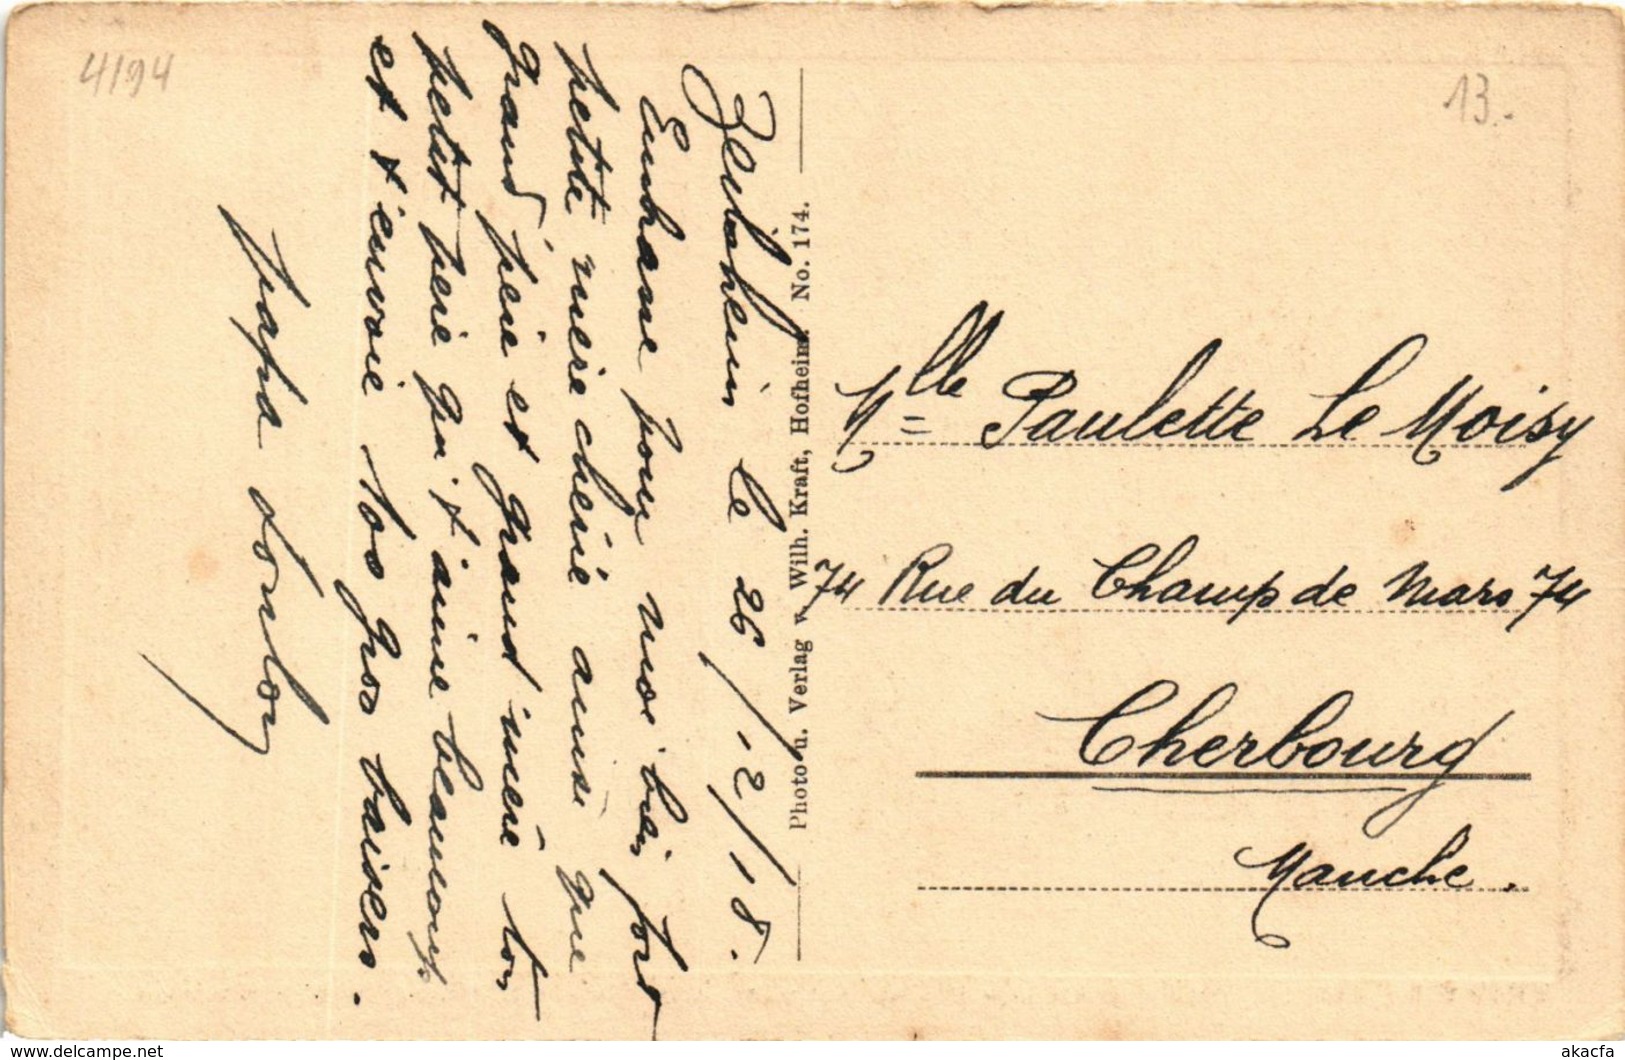 4194
13.-
le 26/12/18.
Embrasse pour moi bien fort
petite mère chérie ainsi que
grand père et grand mère ton
petit père qui t'aime beaucoup
et t'envoie 100 gros baisers.
papa
Photo u. Verlag v. Wilh. Kraft, Hofheim. No. 174.
Mlle Paulette Le Moisy
74 Rue du Champ de Mars 74
Cherbourg
Manche.
www.delcampe.net
akacfa